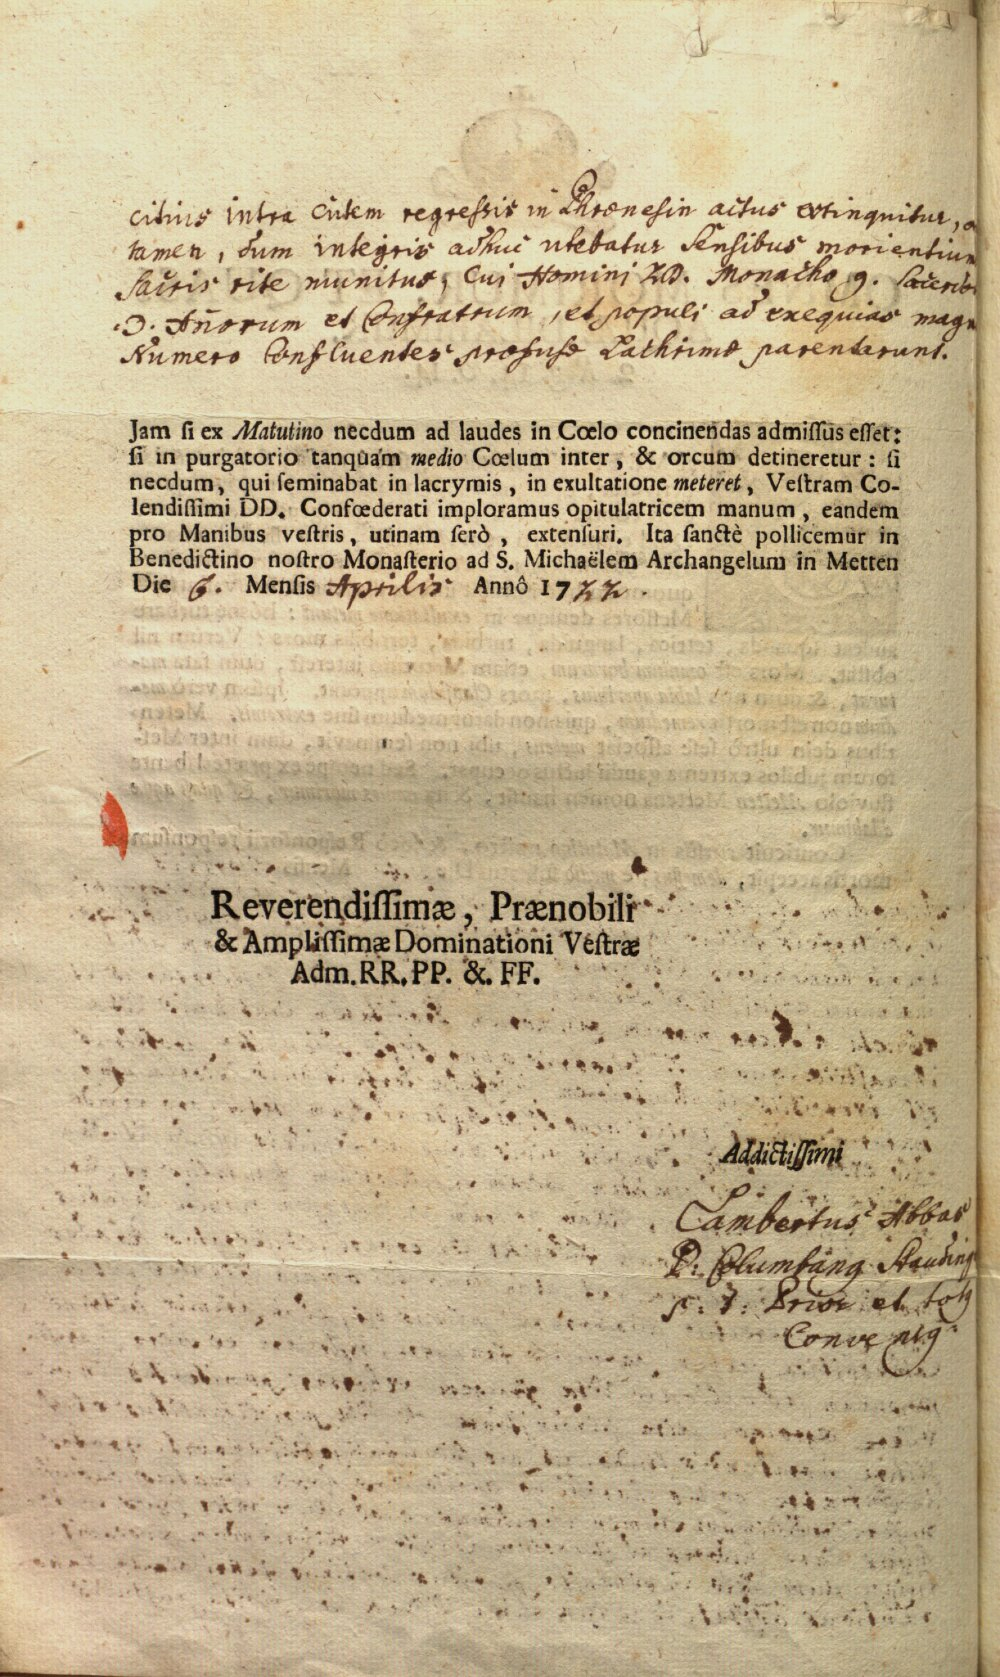 citius intra cutem regressis in Phrœnesin actus extinguitur,
tamen, dum integris adhuc utebatur sensibus morientium
Sacris rite munitus, Cui Homini Monacho 9. Sacerdo
Añorum et Confratrum, et populi ad exequias mag
Numero Confluentes profusæ Lachrimæ parentarunt.
Jam ſi ex Matutino necdum ad laudes in Cœlo concinendas admiſſus eſſet:
ſi in purgatorio tanquàm medio Cœlum inter, & orcum detineretur: ſi
necdum, qui ſeminabat in lacrymis, in exultatione meteret, Veſtram Co-
lendiſſimi DD. Confœderati imploramus opitulatricem manum, eandem
pro Manibus veſtris, utinam ſerò, extenſuri. Ita ſanctè pollicemur in
Benedictino noſtro Monaſterio ad S. Michaëlem Archangelum in Metten
Die 6. Menſis Aprilis Annô 1722.
Reverendiſſimæ, Prænobili
& Ampliſſimæ Dominationi Veſtræ
Adm. RR. PP. &. FF.
Addictiſſimi
Lambertus Abbas
P: Columbang Stauding
p. t. Prior et totg
Conventg